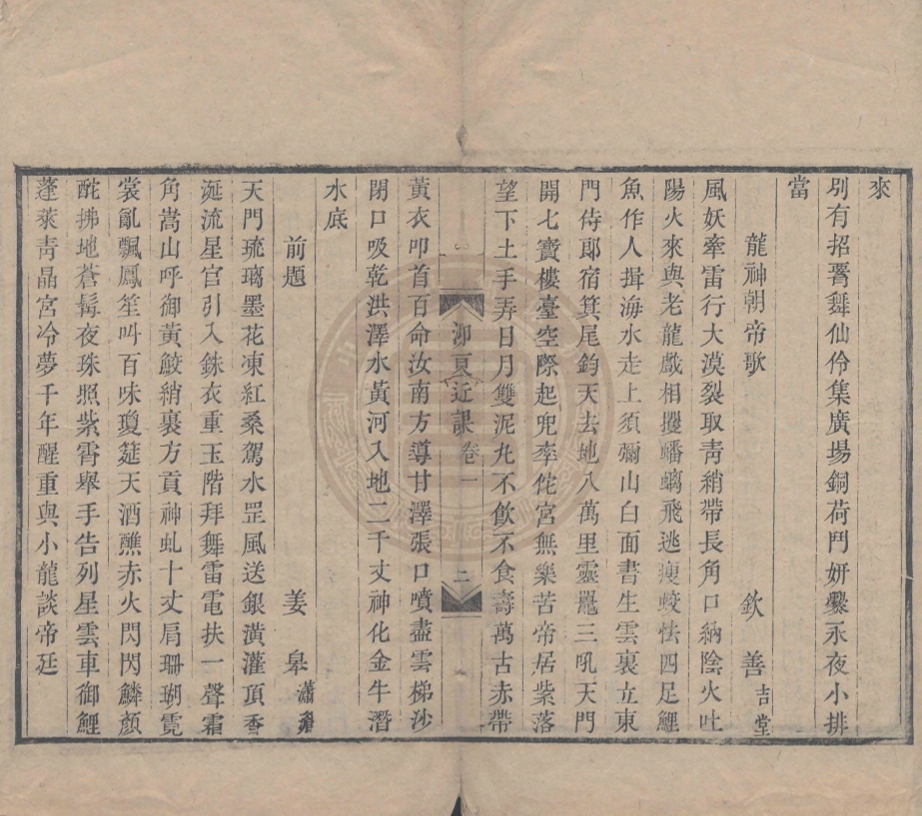 來
別有招署舞仙伶集廣場銅荷鬥妍爨永夜小排
當
龍神朝帝歌 欽善吉堂
風妖牽雷行大漠裂取靑綃帶長角口納陰火吐
陽火來與老龍戲相攫蟠螭飛逃瘦蛟怯四足鯉
魚作人揖海水走上須彌山白面書生雲裏立東
門侍郎宿箕尾鈞天去地八萬里靈鼉三吼天門
開七寶樓臺空際起兜率侘宮無樂苦帝居紫落
望下土手弄日月雙泥丸不飲不食壽萬古赤帶
黃衣叩首百命汝南方導甘澤張口噴盡雲梯沙
閉口吸乾洪澤水黃河入地二千丈神化金牛潛
水底
前題 姜皋
天門琉璃墨花凍紅桑駕水罡風送銀潢灌頂香
涎流星官引入銖衣重玉階拜舞雷電扶一聲霜
角嵩山呼御黃鮫綃裹方貢神虬十丈肩珊瑚霓
裳亂飄鳳笙叫百味瓊筵天酒醮赤火閃閃鱗顏
酡拂地蒼髯夜珠照紫霄舉手告列星雲車御鯉
蓬萊靑晶宮冷夢千年醒重與小龍談帝廷
泖東近課 卷一 二